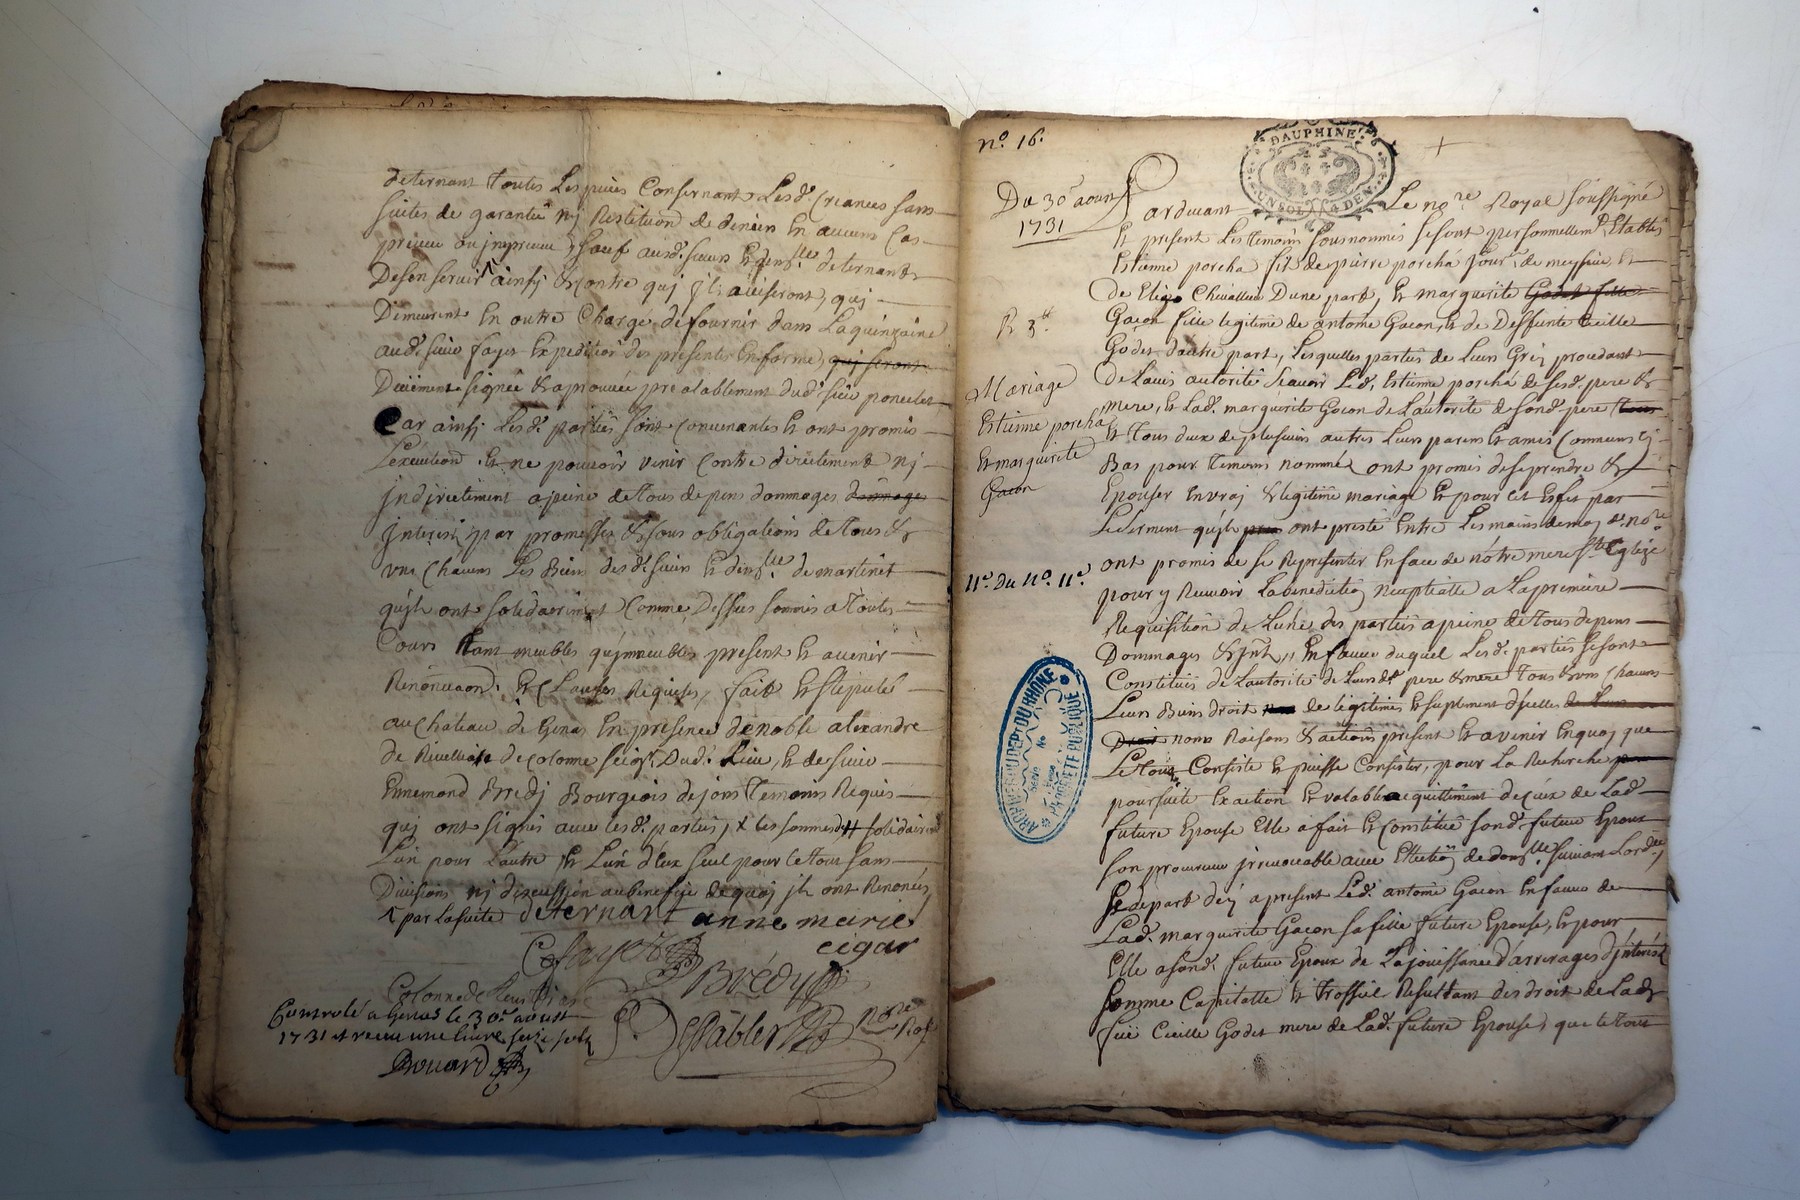 deternant toutes Les pieces Consernant Lesd. Creances sans
suites de garantie nj Restitution de deniers En aucuns Cas
preveu ou jnpreveu, sauf aud. sieur Et dem.lle deternant
Desen servir ainsi & Contre quj jls aviseront, quj
Demeurent En outre Chargé de fournir dans La quinzaine
aud. sieur fayet Expedition des presentes En forme, quj seront
Duëment signée & aprouvée prealablement dud. sieur poncelet
Car ainsj Lesd. parties sont Convenantes Et ont promis
L'execution Et ne pouvoir venir Contre directement nj
jndirectement a peine de tous depens dommages dommages
jnterest, par promesses & sous obligations de tous &
vns Chacuns Les Biens desd. sieur Et dem.lle de martinet
qu'jls ont solidairement Comme Dessus soumis a Toutes
Cours tant meubles qu'jmmeubles present Et avenir
Renonciaon. Et Clauses Requises, fait Et stipulé
au Chateau de Genas En presence de noble alexandre
de Colonne seig.r Dud. Lieu, Et de sieur
Ennemond Bredj Bourgeois de jons Temoins Requis
quj ont signés avec lesd. parties, x les sommes solidairem.t
L'un pour L'autre, Et L'un d'Eux seul pour le tout sans
Divisions nj discussion au benefice de quoj jls ont Renoncés
^ par la suite deternant anne marie
cigar
Cfayet
Brédy
Colonne de
Controlé a Genas le 30e aoust
1731 et receu une livre seize sols
Despâbler No.re Ro.l
Brouard
n.o 16.
DAUPHINE
UN SOL 4 DEN
Du 30e aoust
1731
Pardevant Le no.re Royal soussigné
Et present Les Temoins sousnommés se sont personnellem.t Etablis
Estienne porcha fils de pierre porcha jour.r de meyssiez Et
de Chevallier Dune part, Et marguerite Godet fille
Gacon fille legitime de antoine Gacon, Et de Deffunte Cicille
R 3.tt
Godet d'autre part, Lesquelles parties de Leur Gréz procedant
De L'avis autorité scavoir Led. Estienne porcha de sesd. pere &
Mariage
mere, Et Lad. marguerite Gacon de L'autorité de sond. pere tous
Estienne porcha
Et Tous deux de plusieurs autres Leurs parens Et amis Communs Cj
Et marguerite
Bas pour temoins nommés ont promis de se prendre &
Gacon
Epouser En vraj & legitime mariage Et pour cet Effet par
Le serment qu'jls ont presté Entre Les mains de moj d. no.re
ont promis de se Representer En face de nôtre mere s.te Eglize
11e. Du No. 11e.
pour y Recevoir La benediction nuptialle a La premiere
Requisition de L'une des parties a peine de tous depens
Dommages & jnts, En faveur duquel Lesd. parties se sont
Constitués de L'autorité de Leursd. pere & mere Tous & vns Chacuns
Leurs Biens droit de legitimes Et suplement d'jcelles
Droit noms Raisons & actions present Et avenir En quoj que
Le Tout Consiste Et puisse Consister, pour La Recherche
poursuite Exaction Et valable acquittement de ceux de Lad.
future Epouse Elle a fait Et Constitué sond. futur Epoux
son procureur jrrevocable avec Election de dom.lle suivant L'ord.re
se depart dez a present Led. antoine Gacon En faveur de
Lad. marguerite Gacon sa fille future Epouse, Et pour
Elle a sond. futur Epoux de La jouissance d'arrerages d'jnterest
somme Capitalle Et Trossel Resultant des droit de Lad.
füe Cicille Godet mere de Lad. future Epouse, que le tout
ARCHIVES DU DEPT DU RHÔNE
PROPRIÉTÉ PUBLIQUE